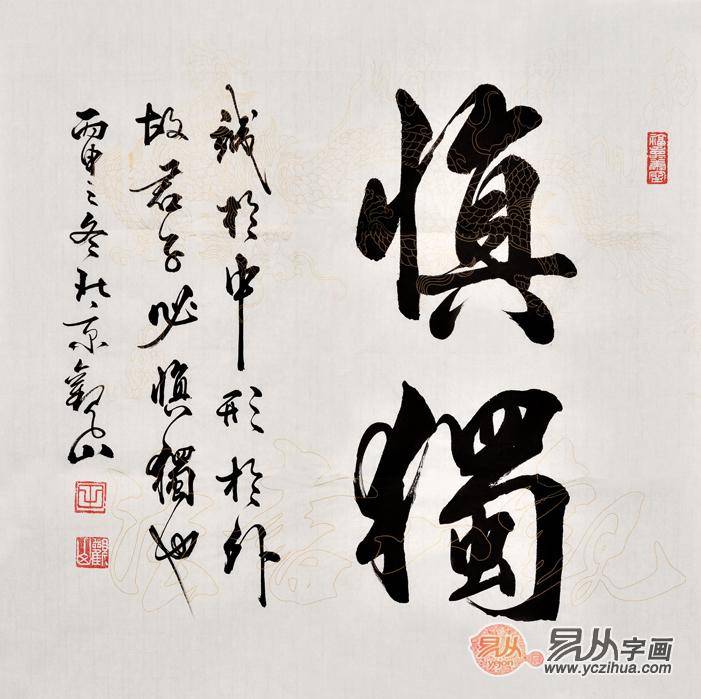 慎獨
誠於中形於外
故君子必慎獨也
丙申之冬北京觀山
易从字画
www.yczihua.com